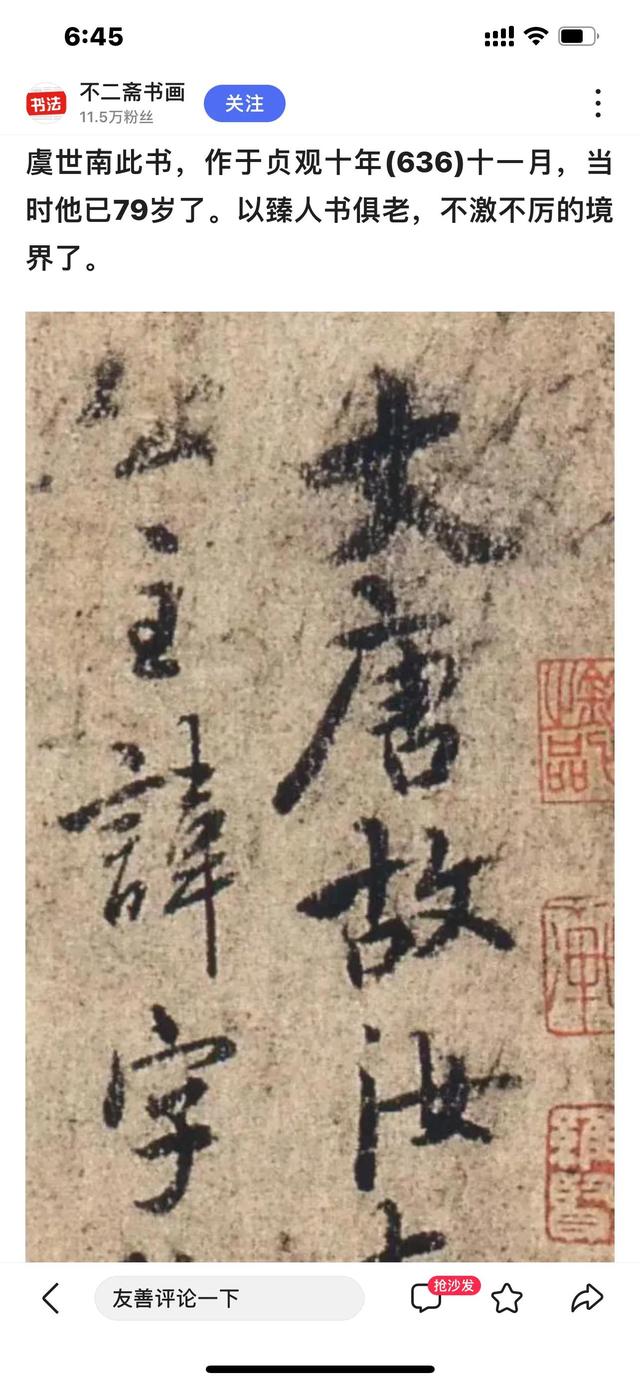 6:45
书法
不二斋书画
11.5万粉丝
关注
虞世南此书，作于贞观十年(636)十一月，当
时他已79岁了。以臻人书俱老，不激不厉的境
界了。
大唐故汝
公主諱字
友善评论一下
抢沙发